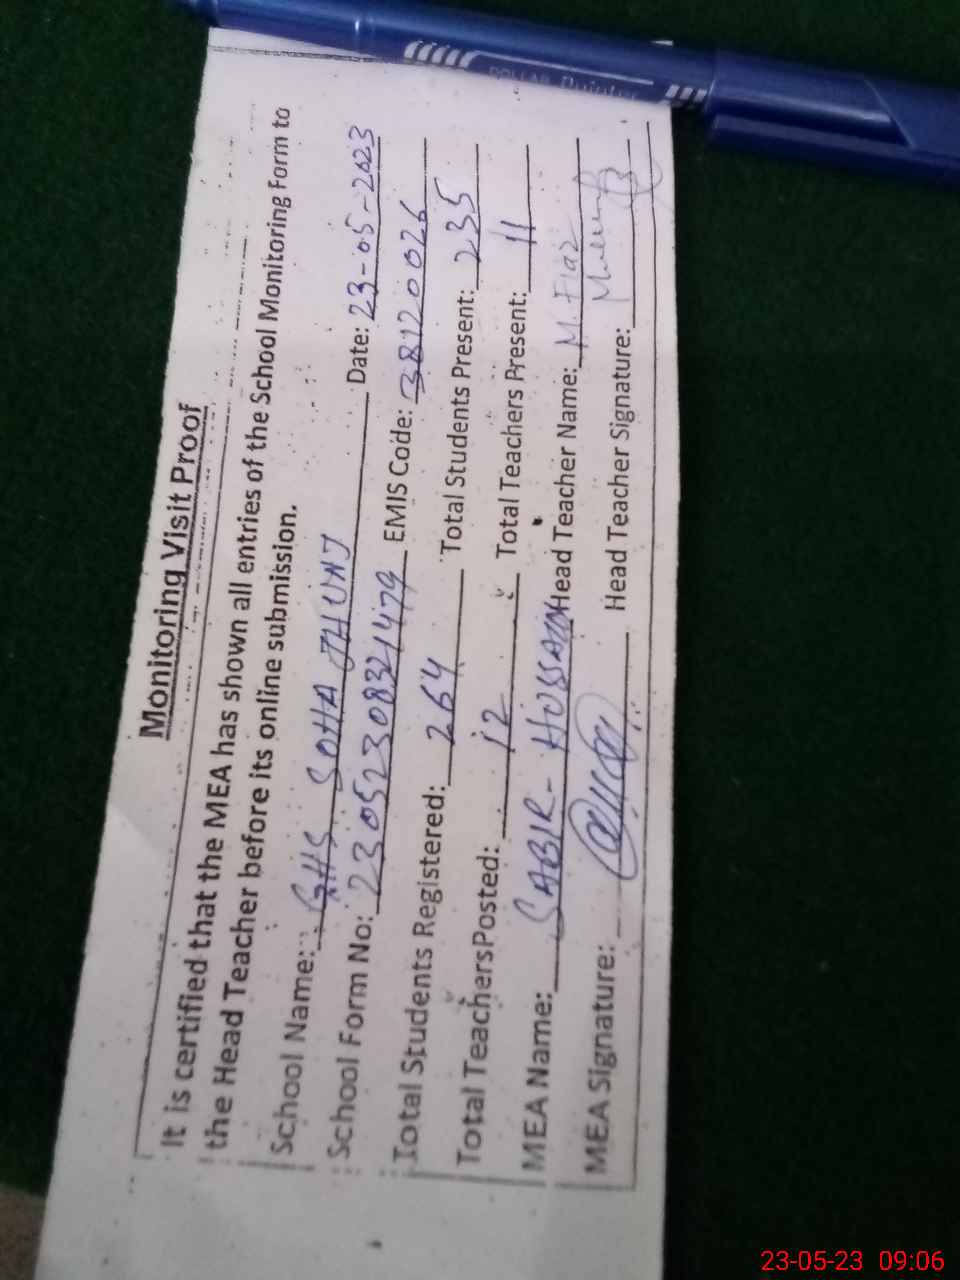 DOLLAR Pointer
Monitoring Visit Proof
It is certified that the MEA has shown all entries of the School Monitoring Form to
the Head Teacher before its online submission.
School Name: GHS SOHA JHUNJ Date: 23-05-2023
School Form No: 23052308321479 EMIS Code: 38120026
Total Students Registered: 264 Total Students Present: 235
Total TeachersPosted: 12 Total Teachers Present: 11
MEA Name: SABIR - HUSSAIN Head Teacher Name: M. Fiaz
MEA Signature: Head Teacher Signature:
23-05-23 09:06